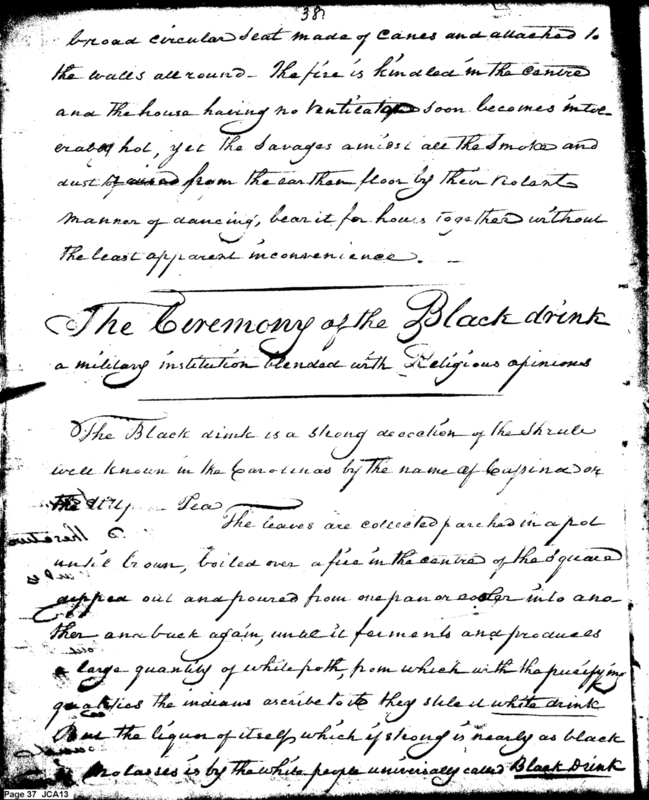 38
broad circular Seat made of Canes and attached to
the walls all round - The fire is kindled in the Centre
and the house having no Ventilator soon becomes intol-
erably hot, yet the Savages amidst all the Smoke and
dust from the earthen floor by their violent
manner of dancing, bear it for hours together without
the least apparent inconvenience. -
The Ceremony of the Black drink
a military institution blended with Religious opinions
The Black drink is a strong decoction of the Shrub
well known in the Carolinas by the name of Casina or
the Tea
The leaves are collected parched in a pot
until brown, boiled over a fire in the centre of the Square
dipped out and poured from one pan or cooler into ano-
ther and back again, until it ferments and produces
a large quantity of white froth, from which with the purifying
qualities the indians ascribe to it they stile it white drink
But the liquor of itself which if strong is nearly as black
as Molasses is by the white people universally called Black Drink
Page 37 JCA13